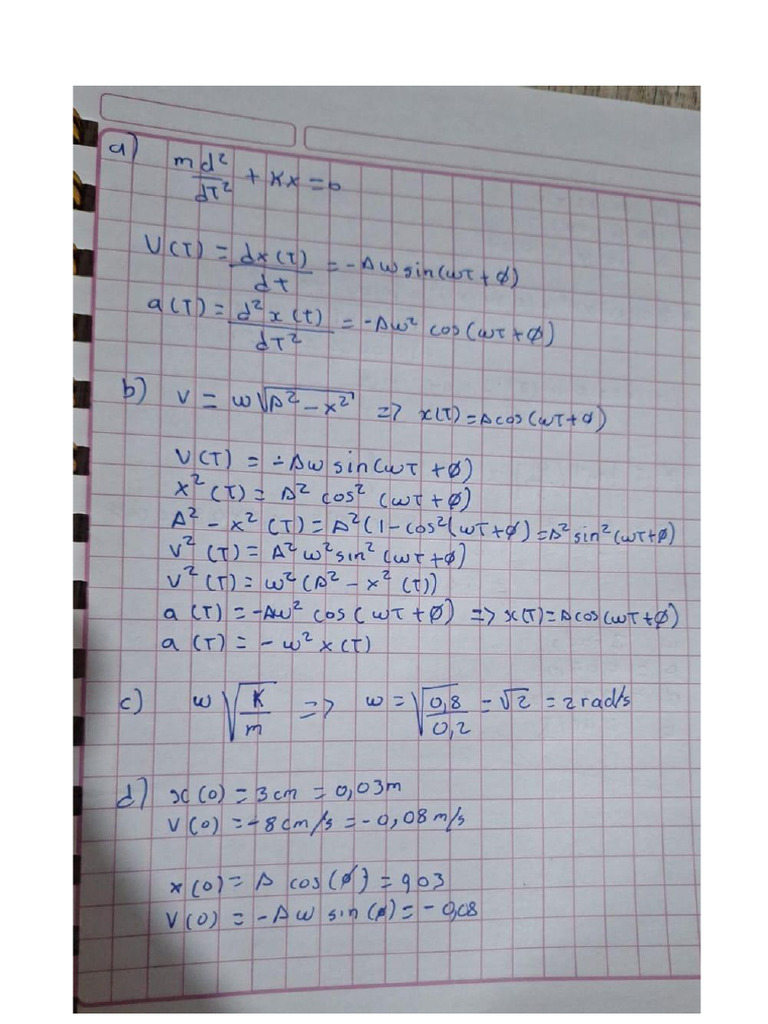 a) m d²/dT² + Kx = 0
V(T) = dx(T)/dt = -Aω sin(ωT + ø)
a(T) = d²x(t)/dT² = -Aω² cos(ωT + ø)
b) V = ω√(A² - x²) => x(T) = A cos(ωT + ø)
V(T) = -Aω sin(ωT + ø)
x²(T) = A² cos²(ωT + ø)
A² - x²(T) = A²(1 - cos²(ωT + ø) = A² sin²(ωT + ø)
V²(T) = A²ω² sin²(ωT + ø)
V²(T) = ω²(A² - x²(T))
a(T) = -Aω² cos(ωT + ø) => x(T) = A cos(ωT + ø)
a(T) = -ω² x(T)
c) ω √(K/m) => ω = √(0,8/0,2) = √2 = 2 rad/s
d) x(0) = 3cm = 0,03m
V(0) = -8cm/s = -0,08 m/s
x(0) = A cos(ø) = 0,03
V(0) = -Aω sin(ø) = -0,08